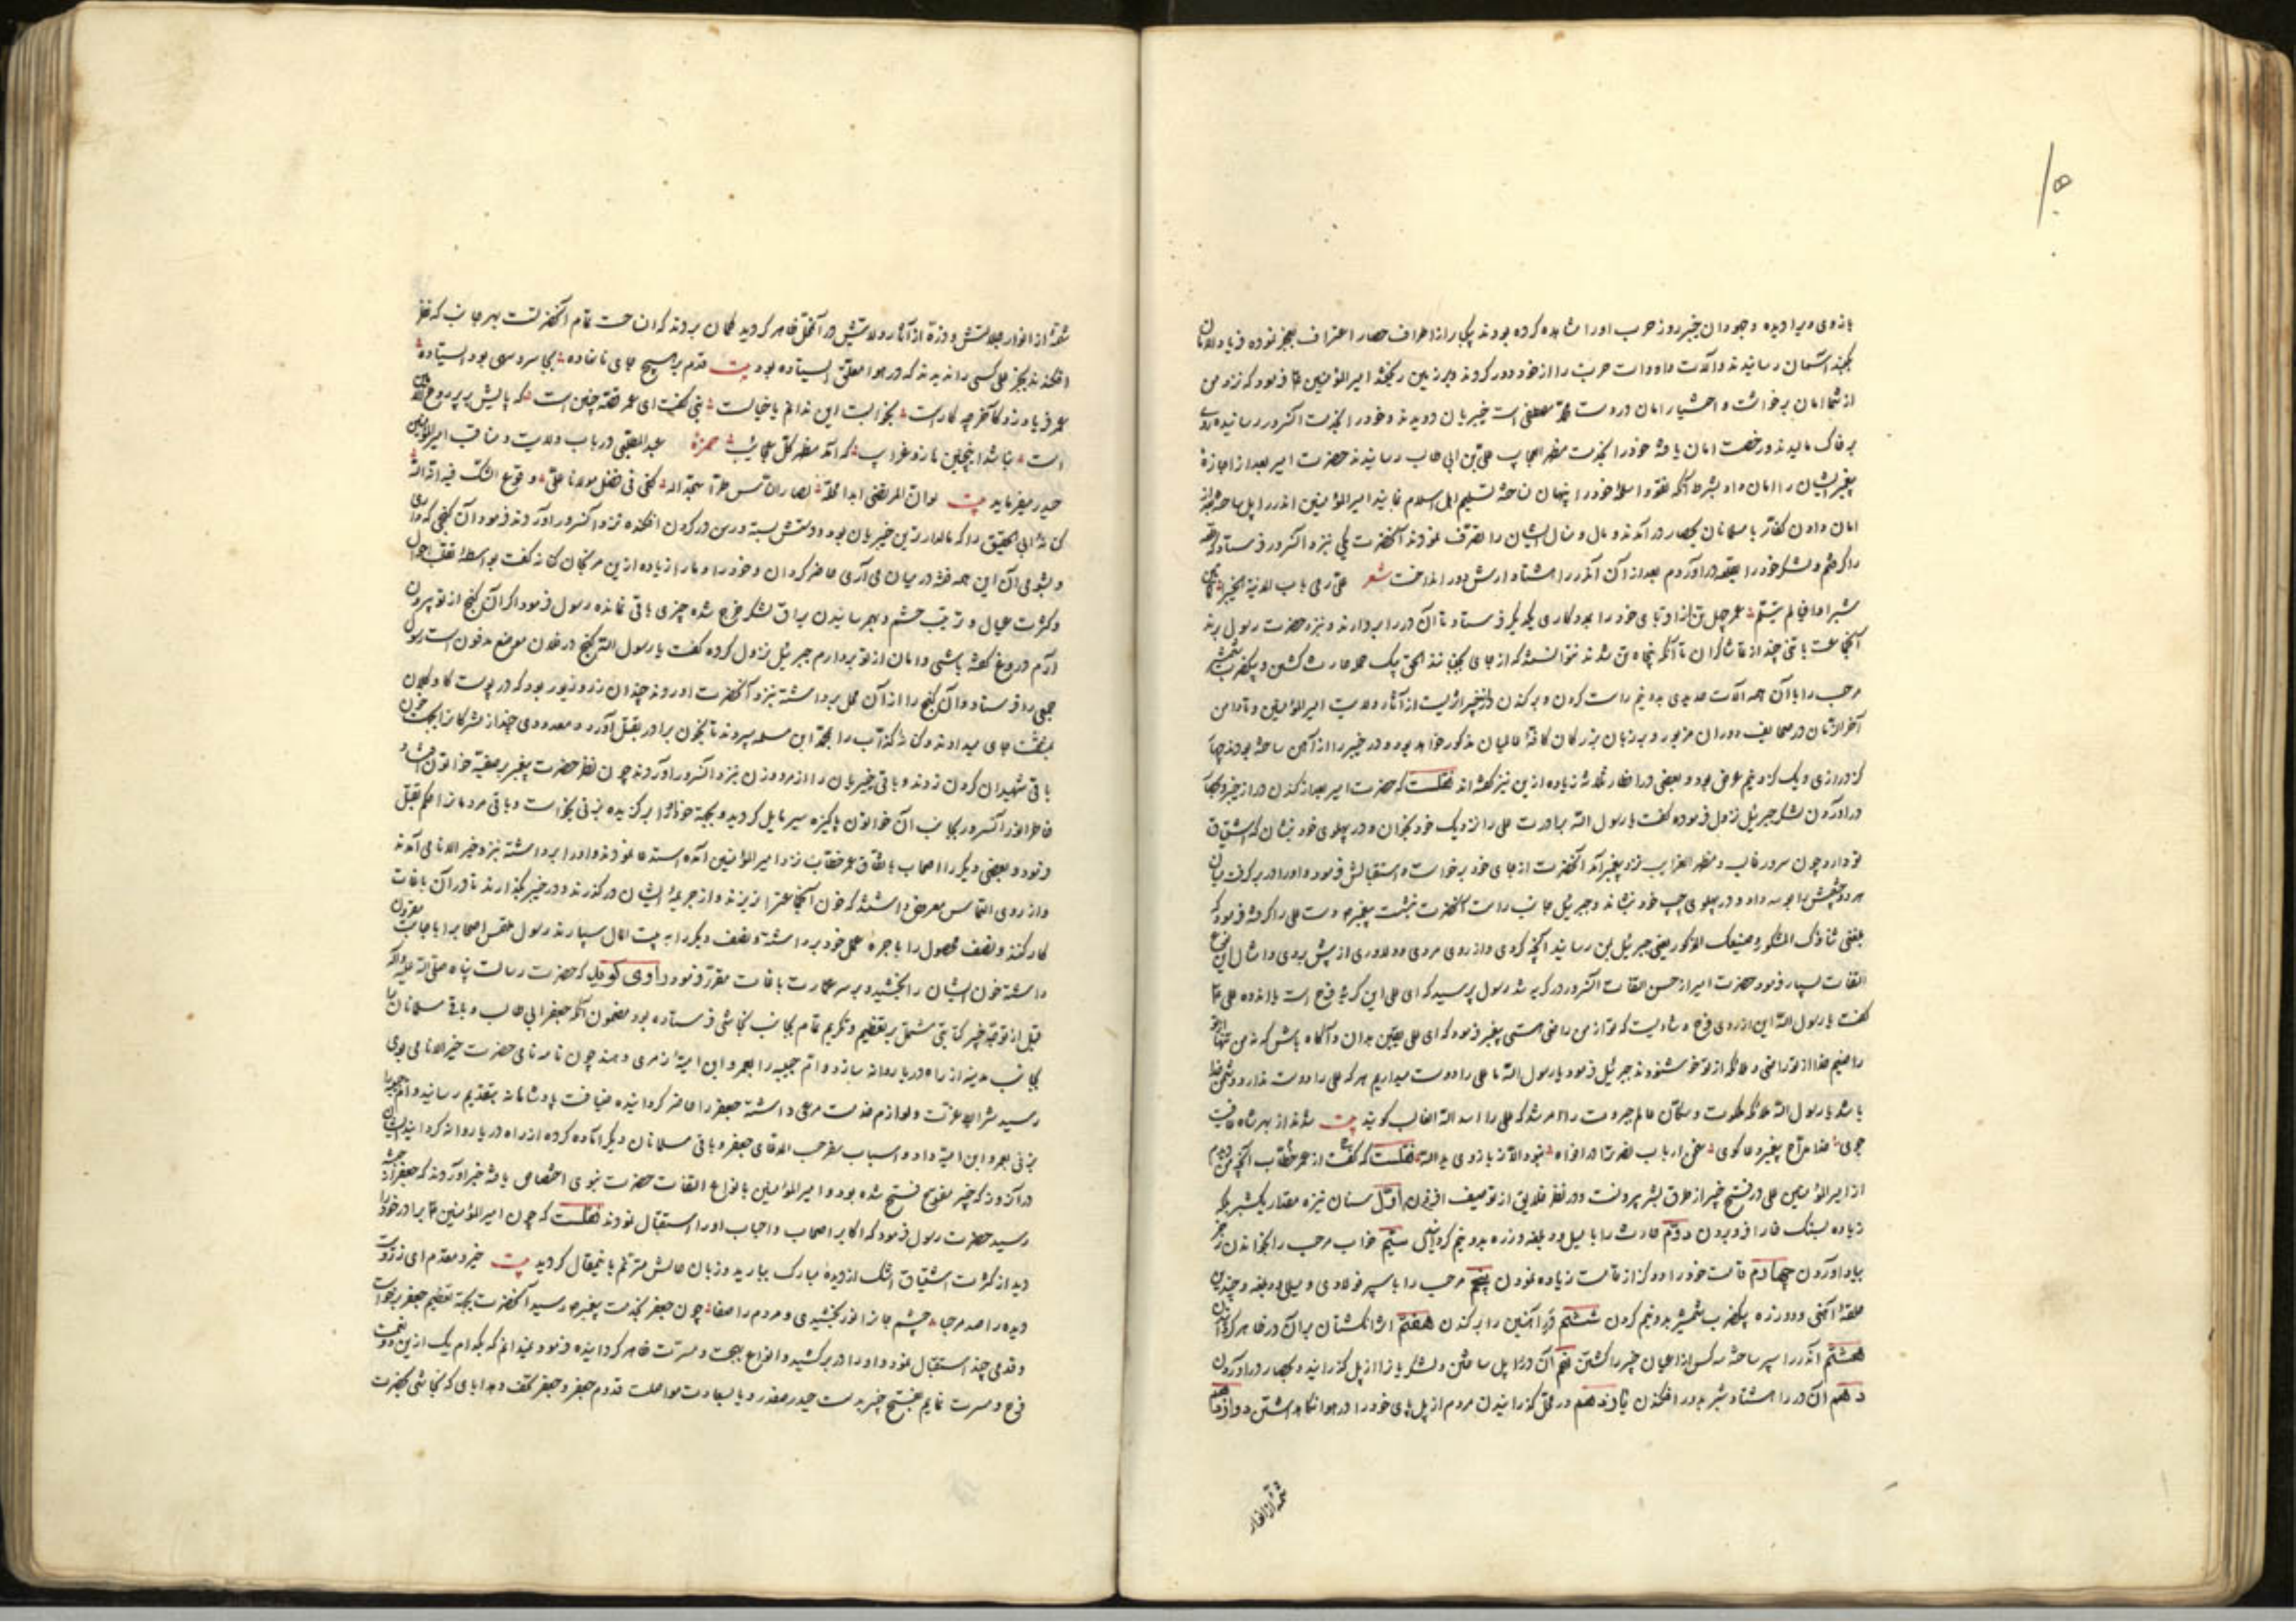 بازوی ویرا دیده وجهودان خیبر روز حرب اورا مشاهده کرده بودند یکبار از اطراف حصار اعتراف بعجز نموده فریاد الامان
آسمان رسانیدند وآلات وادوات حرب را از خود دور کردند وبر زمین ریختند امیر المؤمنین فرمود که نزد من
از شما امان برخواست واختیار امان در دست محمد مصطفی است خیبریان دویدند وخود را بخدمت آنسرور رسانیده روی
بر خاک مالیدند ورخصت امان یافته خود را بخدمت مظهر العجایب علی بن ابی طالب رسانیدند حضرت امیر بعد از اجازهٔ
پیغمبر ایشان را امان داد بشرط آنکه نقود واسلحهٔ خود را پنهان ناخته تسلیم اهل اسلام نمایند امیر المؤمنین اندر را پل ساخته بعد از
امان دادن کفار با مسلمانان بحصار در آمدند ومال ومنال ایشان را تصرف نمودند آنحضرت یکی نزد آنسرور فرستاد که
را گرفتم ولشکر خود را بقلعه در آوردم بعد از آن آندر را هشتاد ارش دور انداخت شعر علی رمی باب المدینة الخیبر
شبرا وافیا لم یثلم عمر چهل تن از اقربای خود را بمددکاری یکدیگر فرستاد تا آن در را بردارند ونزد حضرت رسول برند
آنجماعت با تنی چند از تماشاگران تا آنکه پنجاه تن شدند نتوانستند که از جای بجنبانند الحق یک حمله حارث کشتن وبیکضرب شمشیر
مرحب را با آن همه آلات حدیدی بدو نیم راست کردن وبرکندن در خیبر اثریست از آثار ولایت امیر المؤمنین وتا دامن
آخر الزمان در صحایف دوران مزبور وبر زبان بزرگان کافهٔ عالمیان مذکور خواهد بود ودر خیبر را از آهن ساخته بودند چهار
گز درازی ویک گز ونیم عرض بود وبعضی در اخبار ثلاثه زیاده ازین نیز گفته‌اند نقلست که حضرت امیر بعد از کندن در از خیبر
در آوردن لشکر جبرئیل نزول فرموده گفت یا رسول الله برادرت علی را نزدیک خود بخوان ودر پهلوی خود بنشان که اشتیاق
تو دارد چون سرور غالب ومظهر الغرایب نزد پیغمبر آمد آنحضرت از جای خود برخواست استقبالش فرمود واورا در بر گرفت میان
هر دو چشمش را بوسه داد ودر پهلوی چپ خود نشاند وجبرئیل جانب راست آنحضرت نشست پیغمبر دست علی را گرفته فرمود که
بلغنی ثناؤک المشکور وصنیعک المذکور یعنی جبرئیل بمن رسانید آنچه کردی واز روی مردی ودلاوری از پیش بردی وامثال این
التفات بسیار فرمود حضرت امیر از حسن التفات آنسرور در گریه شد رسول پرسید که ای علی این گریهٔ فرح است یا اندوه علی
گفت یا رسول الله این از روی فرح وشادیست که تو از من راضی هستی پیغمبر فرمود که ای علی یقین بدان وآگاه باش که نه من تنها
راضیم خدا از تو راضی وملائکه از تو خوشنودند جبرئیل فرمود یا رسول الله ما علی را دوست میداریم هر که علی را دوست ندارد دشمن خدا
باشد یا رسول الله ملائکه ملکوت وسکان عالم جبروت را امر شد که علی را اسد الله الغالب گویند بیت
جوی خدا مداح پیغمبر دعا گوی نقلست که گفت از عمر خطاب آنچه من دیدم
از امیر المؤمنین علی در فتح خیبر از طرق بشر بیرونست ودر نظر خلایق از توصیف افزون اول سنان نیزه مقدار یکشبر یکه
زیاده بسنگ خارا فرو بردن دوم حارث را با میل ودبلغه وزره بدو نیم کردن سیم خواب مرحب را بخواندن رجز
بیاد آوردن چهارم قامت خود را دو گز از قامت زیاده نمودن پنجم مرحب را با سپر فولادی ومیل ودبلغه وچندین
حلقهٔ آهنی ودو زره بیکضرب شمشیر بدو نیم کردن ششم در آهنین را برکندن هفتم اثر انگشتان بر آن در ظاهر کردن
هشتم آندر را سپر ساخته سه کس از اعیان خیبر را کشتن نهم آن در را پل ساختن ولشکریانرا از پل گذرانیدن وبحصار در آوردن
دهم آن در را هشتاد شبر بدور افکندن یازدهم در محل گذرانیدن مردم از پل پای خود را در هوا نگاهداشتن دوازدهم
شمهٔ از انوار
شمهٔ از انوار جلالتش وذرهٔ از آثار ولایتش در آنمحل ظاهر گردید گمان بردند که ان حست تمام آنحضرتست بهر جانب که نظر
افکندند بجز علی کسی را ندیدند که در هوا معلق ایستاده بود بیت قدم بر هیچ جای نانهاده بجای سرو سهی بود ایستاده
عمر فریاد زد کآخر چه کارست بخوابست این ندانم یا خیالست نبی گفت ای عمر قصه چنین است که پایش بر پر روح الامین
است نباشد اینچنین نادر وغرایب که آمد مظهر کل عجائب حمزه عبد المطلبی در باب ولایت ومناقب امیر المؤمنین
حیدر میفرماید بیت لو ان المرتضی ابدا محله لصار الناس طرا سجدا له کفی فی فضل مولانا علی وقوع الشک فیه انه الله
کنانهٔ ابی الحقیق را که مالدارترین خیبریان بود ودستش بسته ورسن در گردن افکنده نزد آنسرور آوردند فرمود آن گنجی که داری
وبشومی آن این همه فتنه در میان می آری حاضر گردان وخود را وما را زیاده ازین مرنجان کنانه گفت بواسطهٔ تفقد احوال
وکثرت عیال وترتیب حشم وبهم رسانیدن یراق لشکر خرج شده چیزی باقی نمانده رسول فرمود اگر آن گنج از تو بیرون
آرم دروغ گفته باشی وامان از تو بردارم جبرئیل نزول کرده گفت یا رسول الله گنج در فلان موضع مدفون است رسول
جمعی را فرستاد وآن گنج را از آن محل برداشته نزد آنحضرت آوردند چندان زر وزیور بود که در پوست گاو کلان
بمشقت جای میدادند وکنانهٔ کذاب را بمحمد ابن مسلمه سپردند تا بخون برادر بقتل آورد ومعدودی چند از مشرکانرا بجهت خون
باقی شهیدان گردن زدند وباقی خیبریان را از مرد وزن نزد آنسرور آوردند چون نظر حضرت پیغمبر بر صفیه خواتون افتاد
خاطر انور آنسرور بجانب آن خواتون پاکیزه سیر مایل گردید وبجهة خود برگزیده بزنی بخواست وباقی مردمانرا حکم بقتل
فرمود وبعضی دیگر را اصحاب باتفاق عمر خطاب نزد امیر المؤمنین آمده استدعا نمودند واورا برداشته نزد خیر الانام آمدند
واز روی التماس معروض داشتند که خون آنجماعترا نریزند واز جریمهٔ ایشان در گذرند ودر خیبر بگذارند تا در آن باغات
کار کنند ونصف محصول را باجرهٔ عمل خود برداشته ونصف دیگر را به بیت المال سپارند رسول ملتمس اصحابرا باجابت مقرون
داشته خون ایشان را بخشید وبر سر عمارت باغات مقرر فرمود راوی گوید که حضرت رسالت پناه صلی الله علیه وآله
قبل از توجه خیبر کتابتی مشتمل بر تعظیم وتکریم تمام بجانب نجاشی فرستاده بود مضمون آنکه جعفر ابی طالب وباقی مسلمانان را
بجانب مدینه از راه دریا روانه سازد وام حبیبه را بعمرو ابن امیهٔ ضمری دهند چون نامه نامی حضرت خیر الانام بوی
رسید شرایط عزت ولوازم خدمت مرعی داشته جعفر را حاضر گردانیده ضیافت پادشاهانه بتقدیم رسانید وام حبیبه را
بزنی بعمرو ابن امیه داد واسباب سفر حسب المدعای جعفر وباقی مسلمانان دیگر آماده کرده از راه دریا روانه گردانید ایشان
در آنروز که خیبر مفتوح فتح شده بود وامیر المؤمنین بانواع التفات حضرت نبوی اختصاص یافته خبر آوردند که جعفر از حبشه
رسید حضرت رسول فرمود که اکابر اصحاب واحباب اورا استقبال نمودند نقلست که چون امیر المؤمنین برادر خود را
دید از کثرت اشتیاق اشک از دیدهٔ مبارک ببارید وزبان حالش مترنم باینمقال گردید بیت خیر مقدم ای ز رویت
دیده را صد مرحبا چشم ما را نور بخشیدی ومردم را صفا چون جعفر بخدمت پیغمبر رسید آنحضرت بجهة تعظیم جعفر برخواست
وقدمی چند استقبال نمود واورا در بر کشید وانواع بهجت ومسرت ظاهر گردانیده فرمود نمیدانم که بکدام یک ازین دو نعمت
فرح ومسرت نمایم بفتح خیبر بدست حیدر صفدر ویا بسعادت مواصلت قدوم جعفر وجعفر تحف وهدایای که نجاشی بحضرت